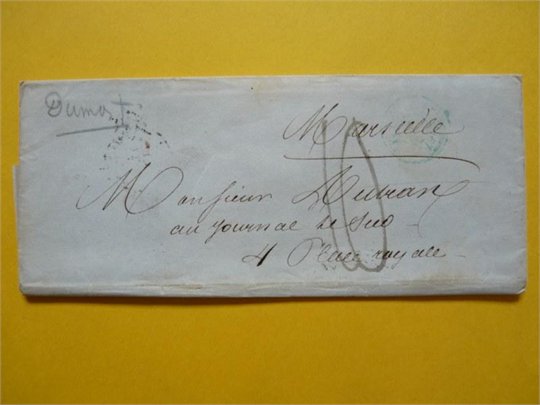 Dumont
Marseille
Monsieur Duran
au Journal le Sud
4 Place royale
10